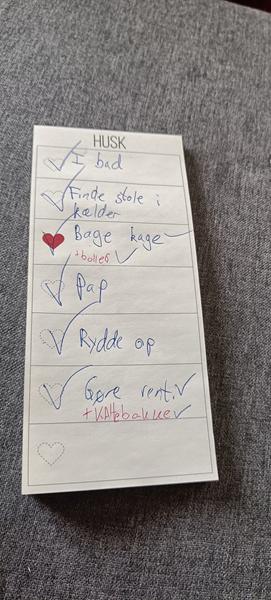 HUSK
I bad
Finde stole i
kælder
Bage kage
+boller
Pap
Rydde op
Gøre rent.
+Kattebakke